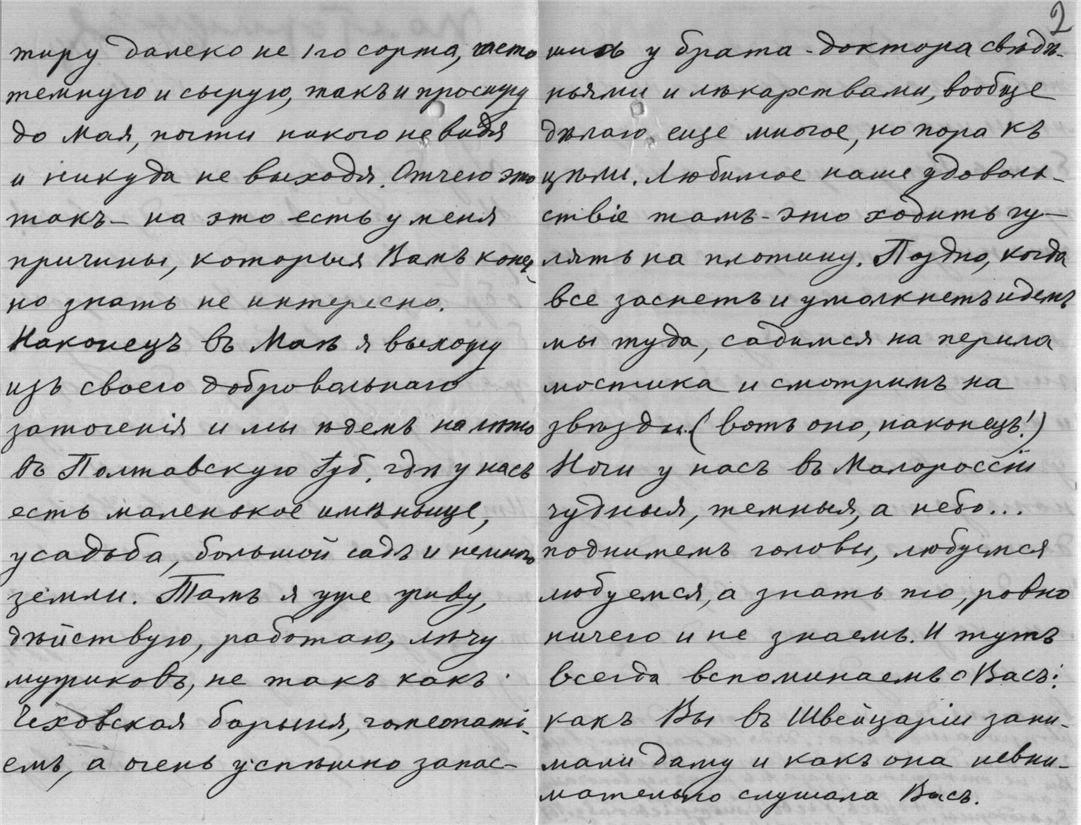 2
тиру далеко не 1го сорта, часто
темную и сырую, такъ и просижу
до мая, почти никого не видя
и никуда не выходя. Отчего это
такъ – на это есть у меня
причины, которыя Вамъ конеч-
но знать не интересно.
Наконецъ въ Маѣ я выхожу
изъ своего добровольнаго
заточенія и мы ѣдемъ на лѣто
въ Полтавскую Губ. гдѣ у насъ
есть маленькое имѣньице,
усадьба, большой садъ и немного
земли. Тамъ я уже живу,
дѣйствую, работаю, лѣчу
мужиковъ, не такъ какъ
Чеховская барыня, гомеопаті-
емъ, а очень успѣшно запас-
шись у брата-доктора свѣдѣ-
ньями и лѣкарствами, вообще
дѣлаю еще многое, но пора къ
цѣли. Любимое наше удоволь-
ствіе тамъ – это ходить гу-
лять на плотину. Поздно, когда
все заснетъ и умолкнетъ идемъ
мы туда, садимся на перила
мостика и смотримъ на
звѣзды. (вотъ оно, наконецъ!)
Ночи у насъ въ Малороссіи
чудныя, темныя, а небо...
поднимемъ головы, любуемся
любуемся, а знать то, ровно
ничего и не знаемъ. И тутъ
всегда вспоминаемъ о Васъ:
какъ Вы въ Швейцаріи зани-
мали даму и какъ она невни-
мательно слушала Васъ.